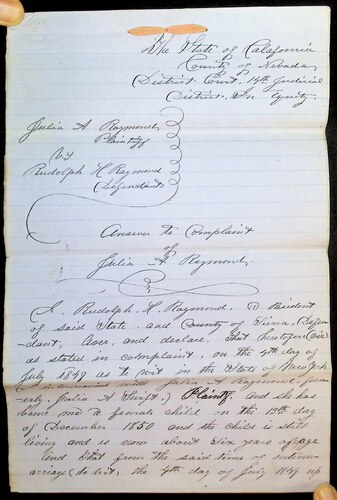 The State of Calafornia
County of Nevada,
District Court, 14th Judicial
District. In Equity.
Julia A Raymond,
Plaintiff
Vs
Rudolph H Raymond
Defendant
Answer to Complaint
of
Julia A Raymond.
I, Rudolph. H. Raymond. A resident
of said State. and County of Sierra, (Defen-
dant, Aver, and declare, that heretofore
as stated in complaint, on the 4th day of
July 1849 as to wit in the State of New York
with Julia A Raymond form-
erly Julia A Plaintiff, and she has
borne me a female child on the 13th day
of December 1850 and the child is still
living and is now about six years of age
And that from the said time of interm-
arriage (to wit, the 4th day of July 1849 up